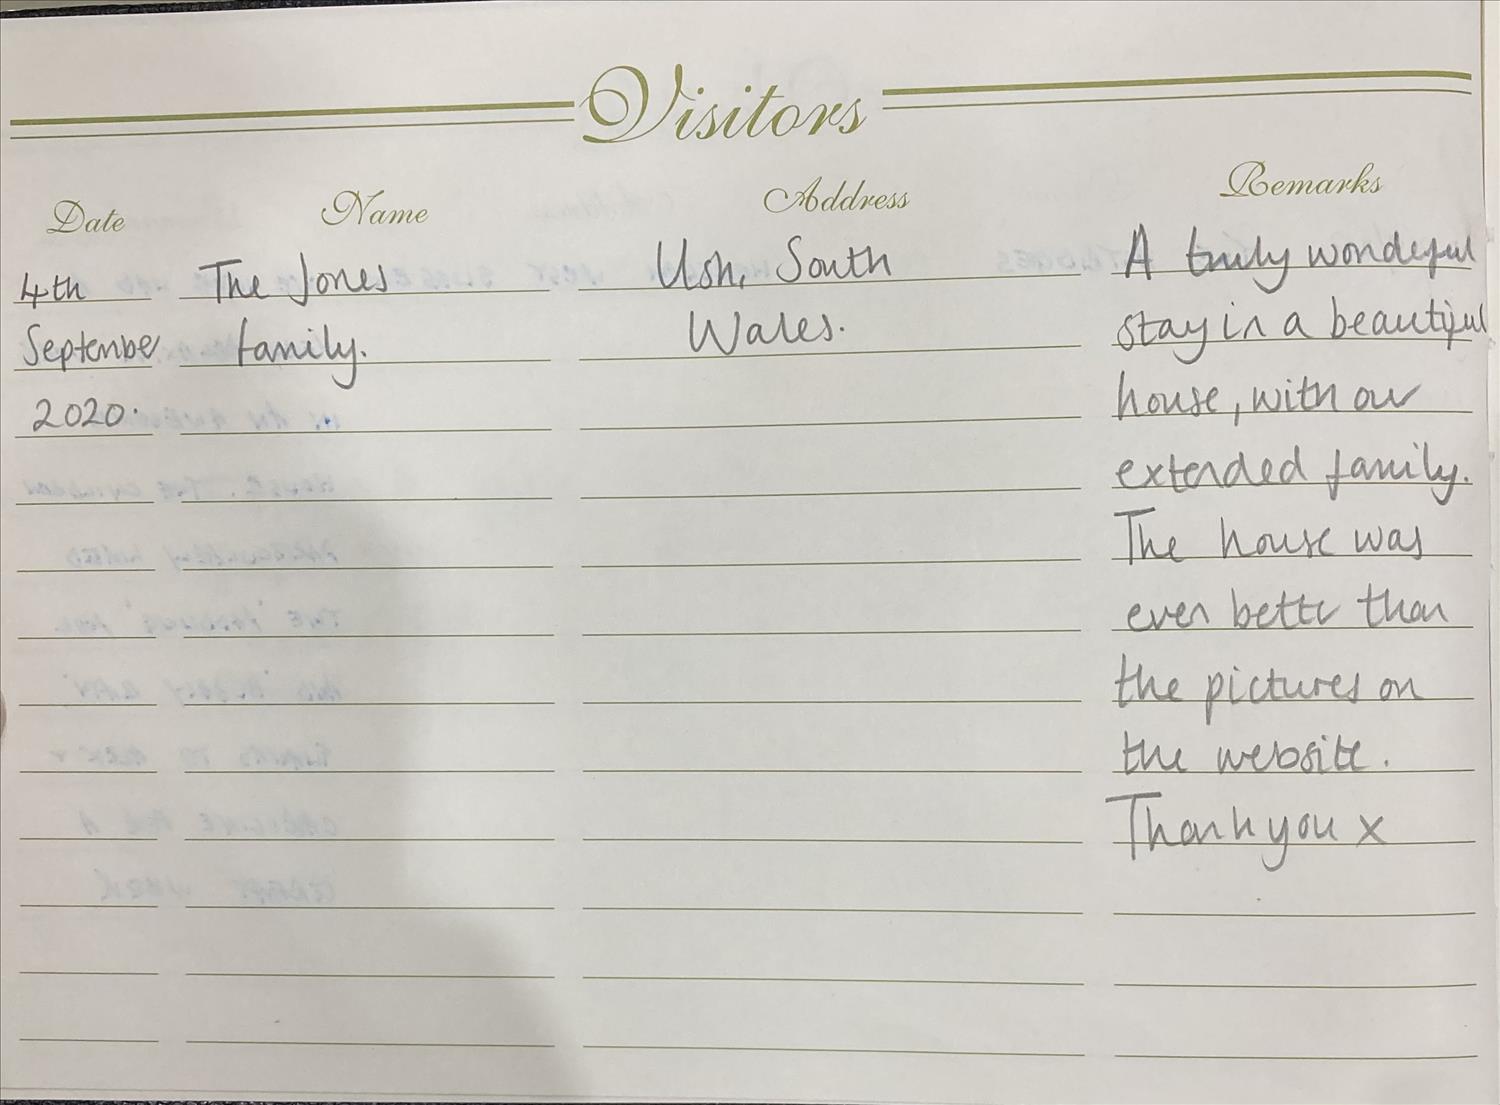 Visitors
Date Name Address Remarks
4th The Jones Usk, South A truly wonderful
September family. Wales. stay in a beautiful
2020. house, with our
extended family.
The house was
even better than
the pictures on
the website.
Thank you x